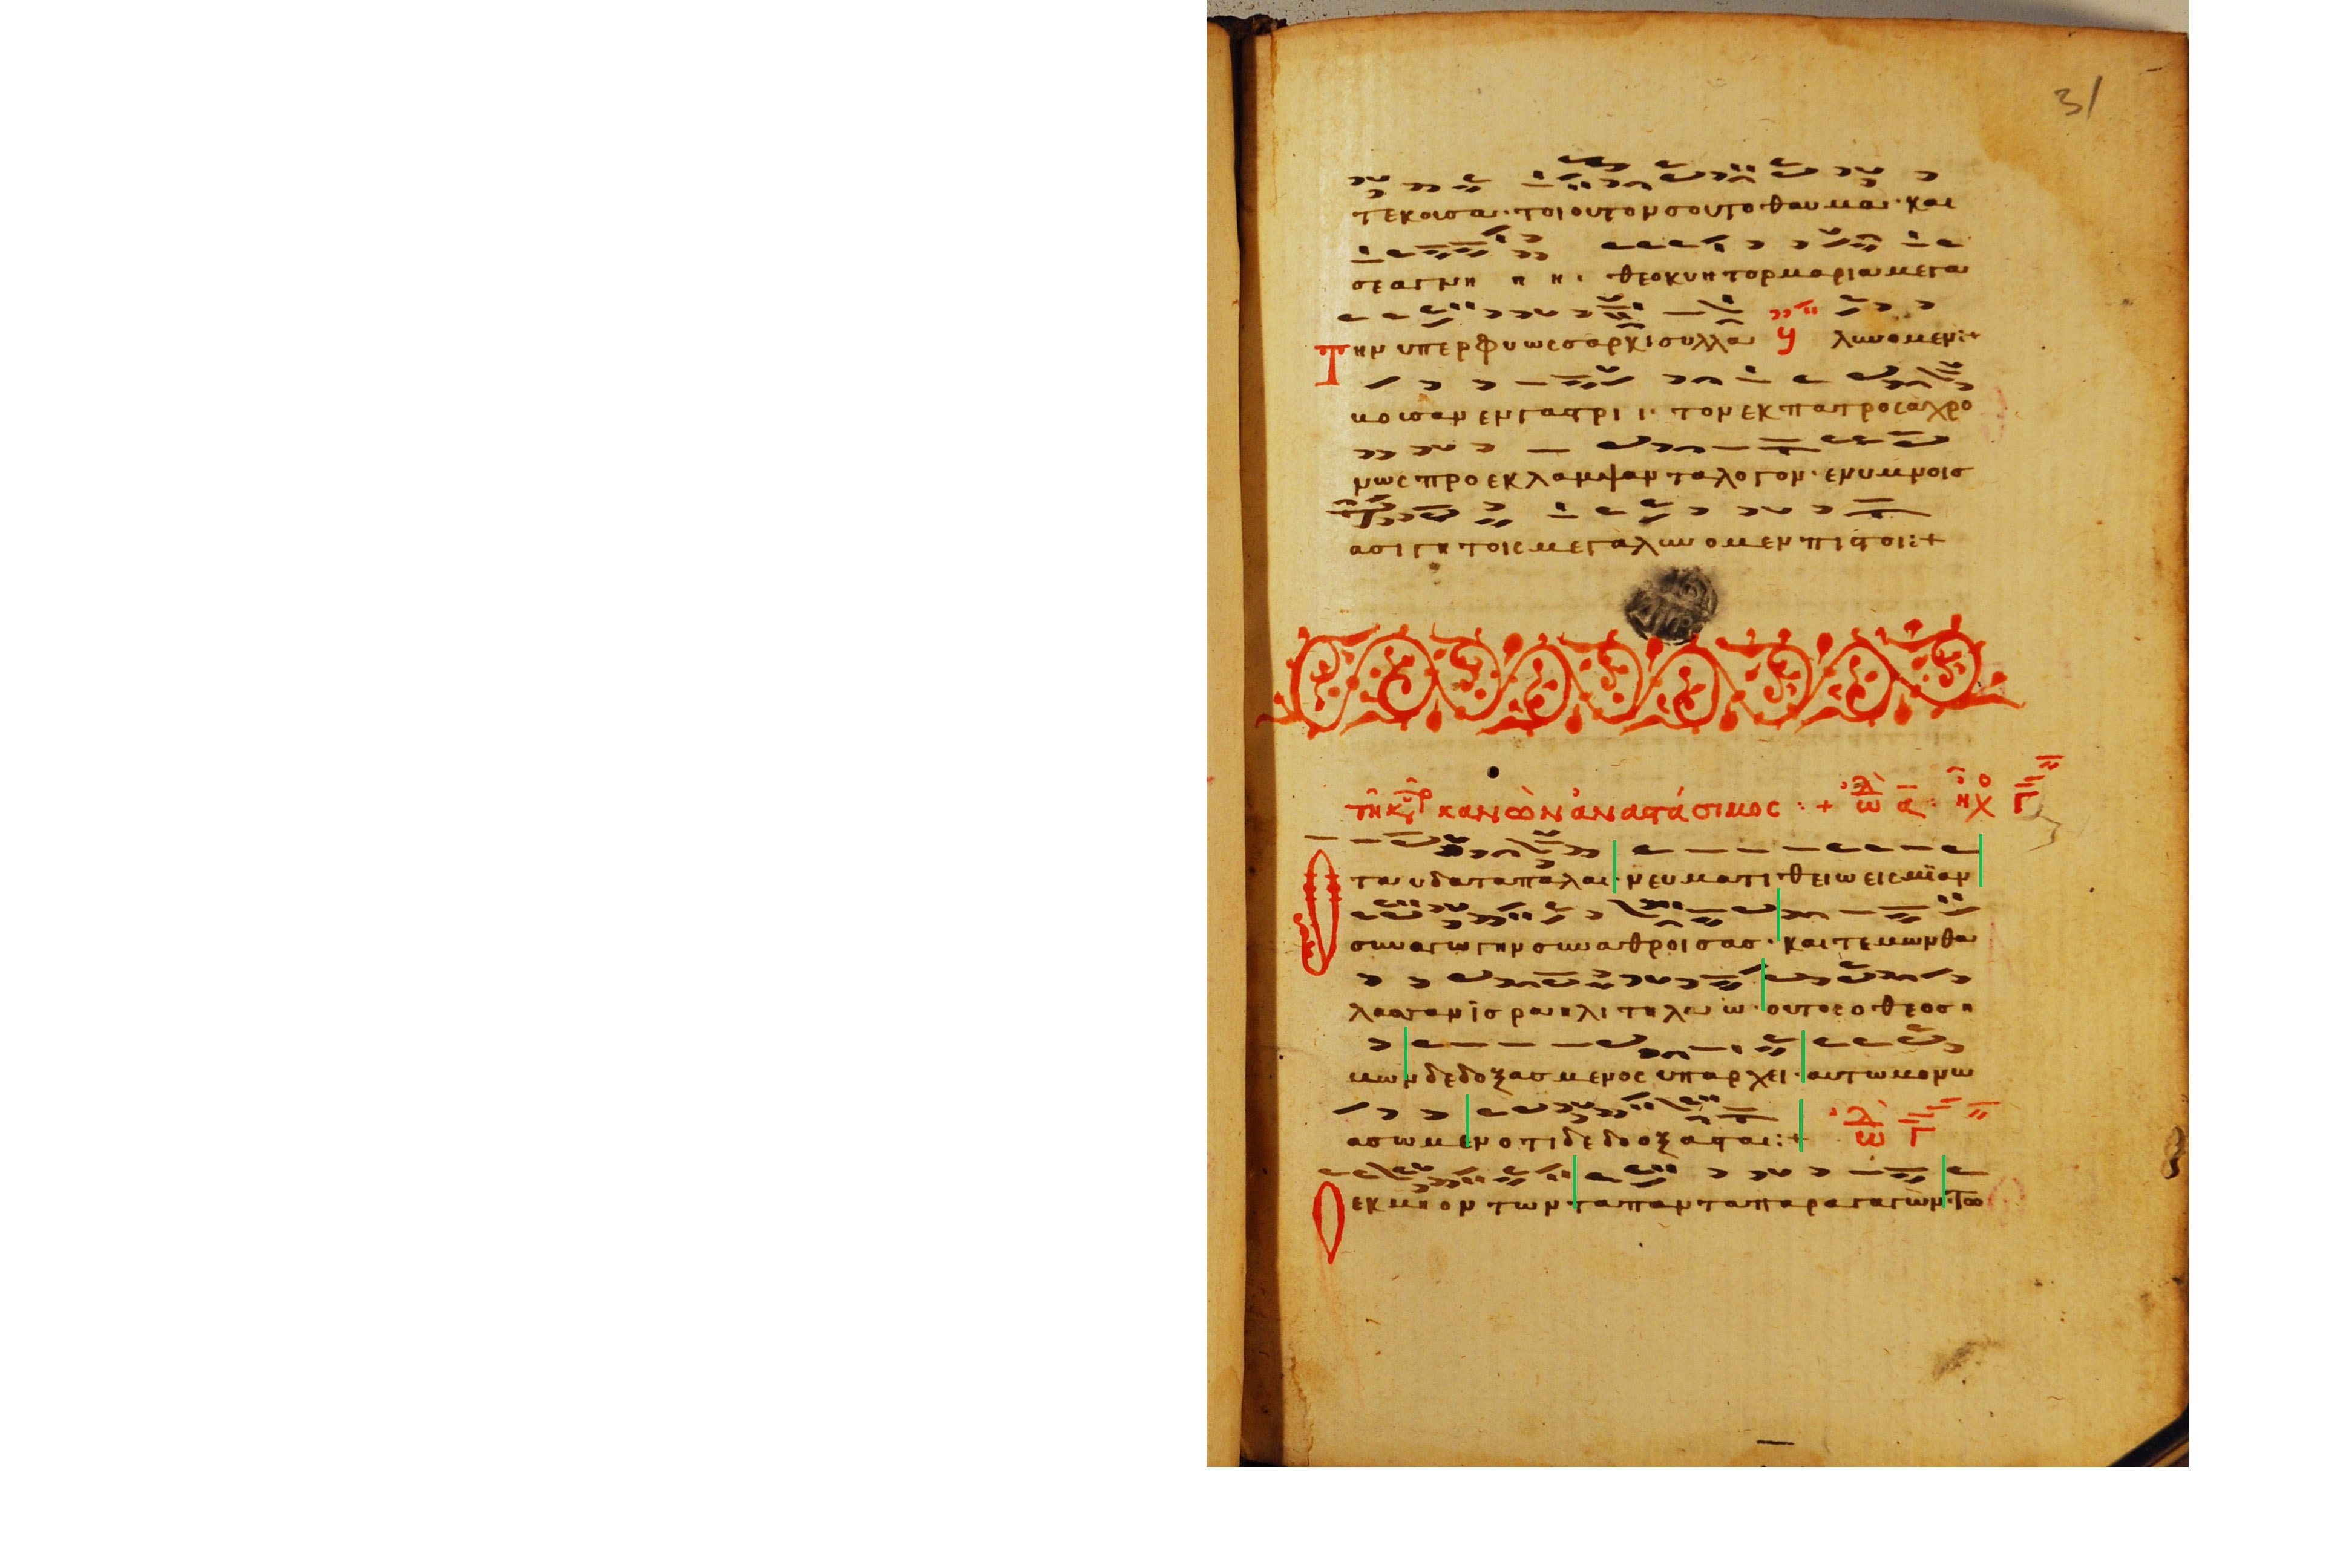 31
τεκουσα· τοιουτον σου το θαυμα· και
σε αγνη η η· θεοκυητορ μαρια μεγα
λυνομεν:+
Την υπερφυως σαρκι συλλα
βουσαν εν γαστρι ι· τον εκ πατρος αχρο
νως προεκλαμψαντα λογον· εν υμνοις
ασιγητοις μεγαλυνομεν πιστοι:+
κανὼν ἀναστάσιμος :+ ᾠδ ᾱ· ἦχο Γ
Ο τα υδατα παλαι· νευματι θειω εις μϊαν
συναγωγην συναθροισας· και τεμων θα
λασσαν ϊσραηλιτη λα ω· ουτος ο θεος η
μων δεδοξασμενος υπαρχει· αυτω μονω
ασωμεν οτι δεδοξασται:+ ᾠδ Γ
Ο εκ μη οντων τα παντα παραγαγων· τω